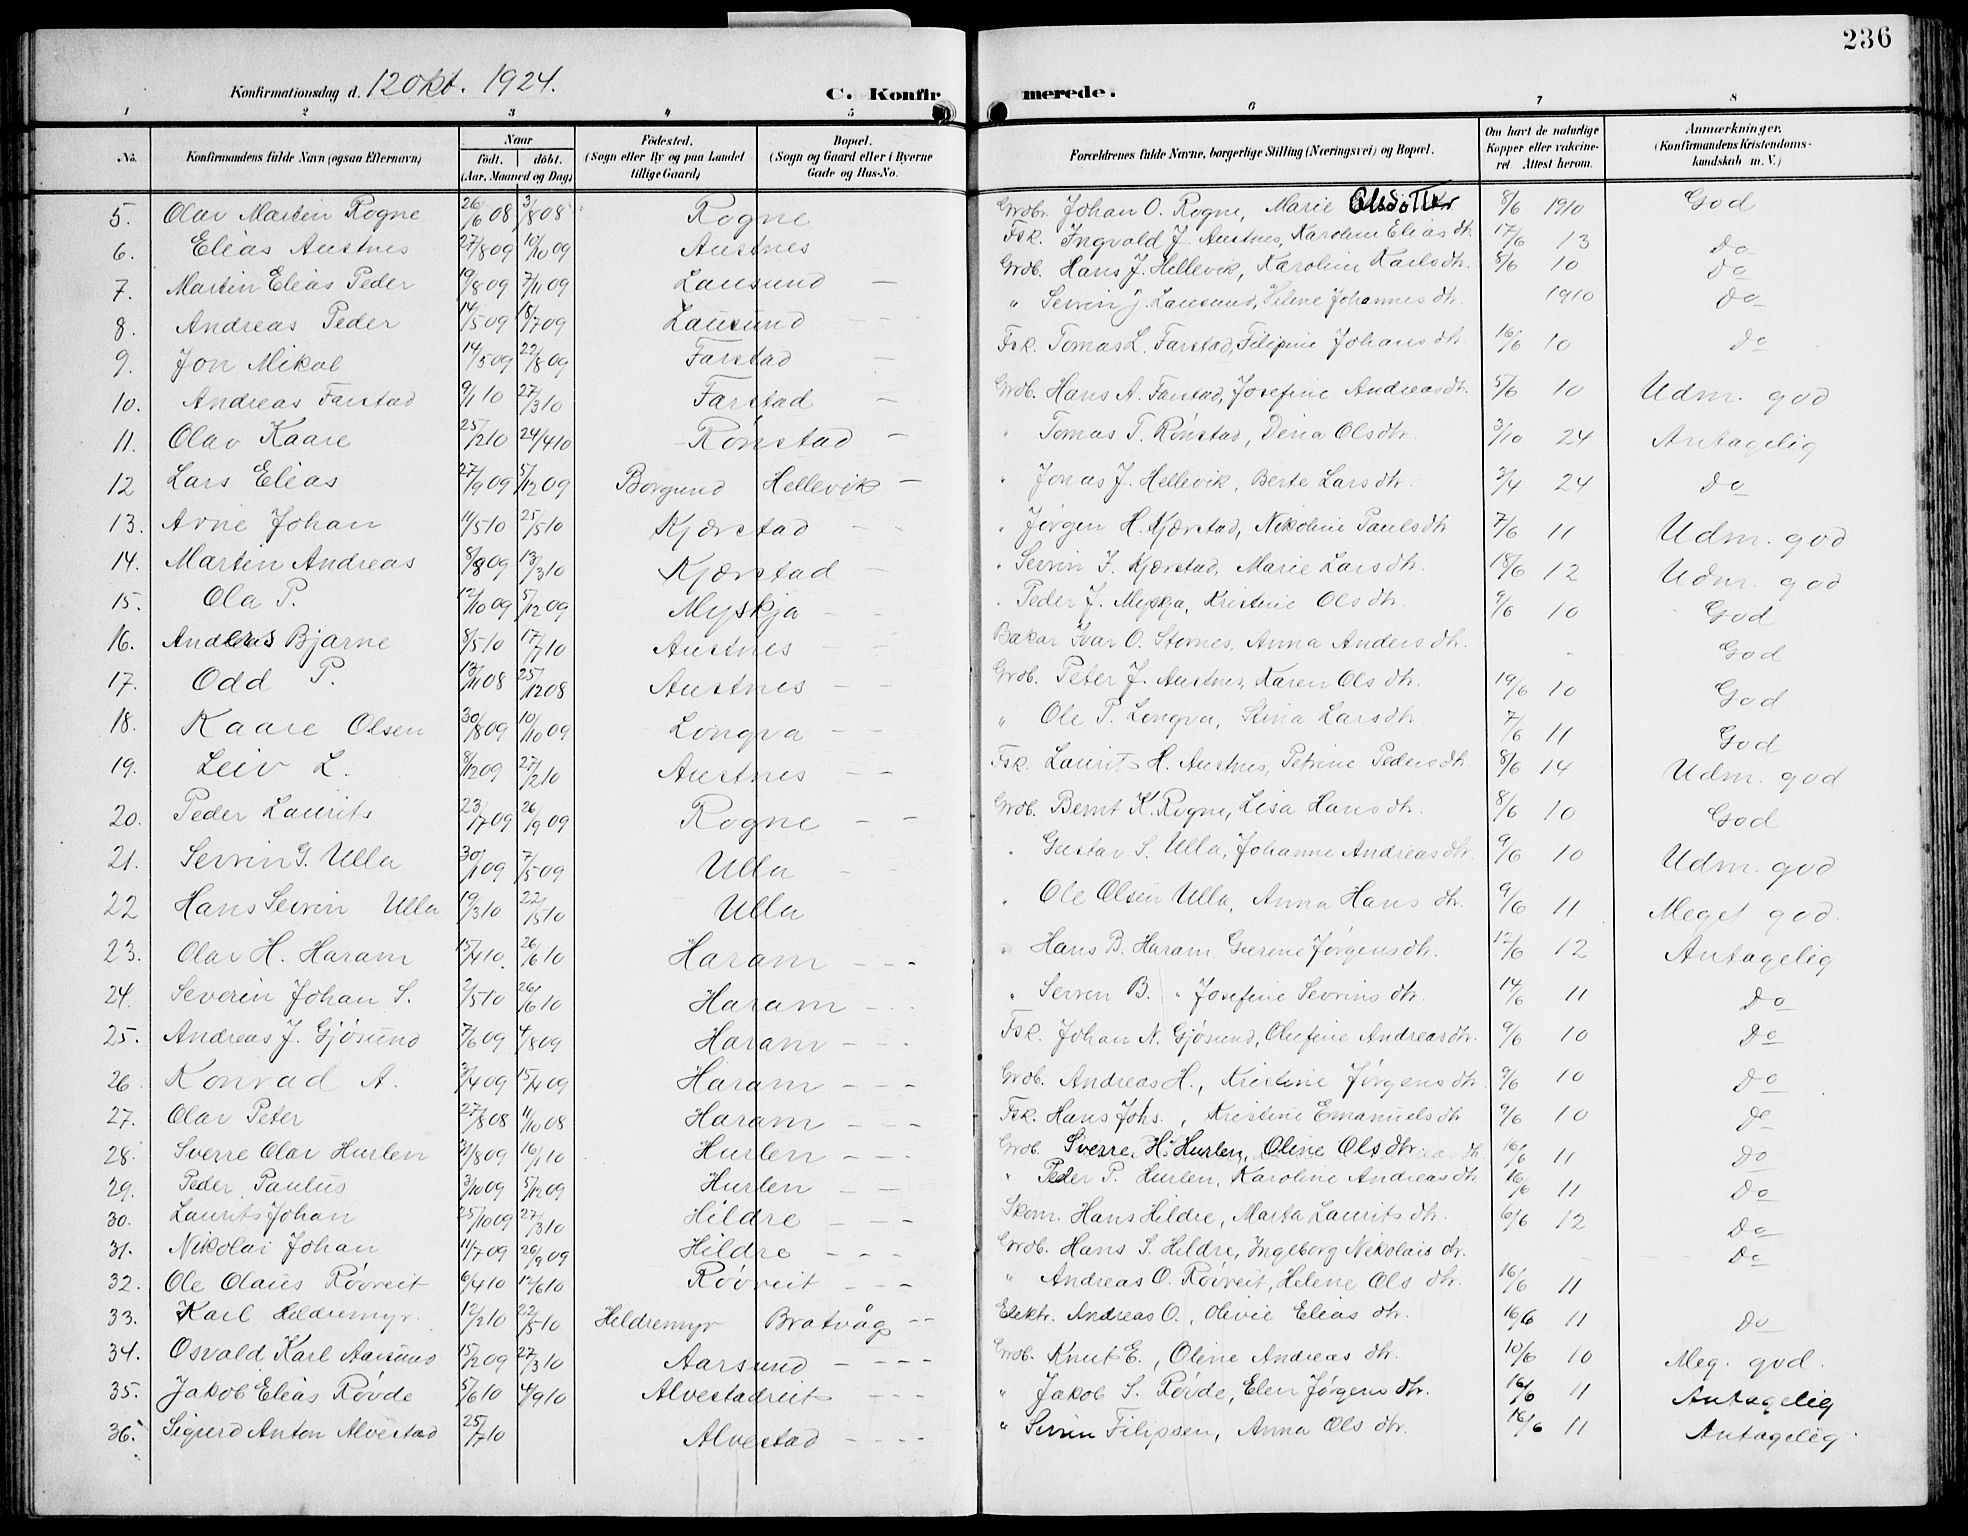 236
Konfirmationsdag d. 12 Okt. 1924. C. Konfir merede.
1 2 3 4 5 6 7 8
No. Konfirmandens fulde Navn (ogsaa Efternavn) Naar født. døbt. (Aar, Maaned og Dag) Fødested. (Sogn eller By og paa Landet tillige Gaard) Bopæl. (Sogn og Gaard eller i Byerne Gade og Hus-No. Forældrenes fulde Navne, borgerlige Stilling (Næringsvei) og Bopæl. Om havt de naturlige Kopper eller vakcineret Attest herom. Anmærkninger. (Konfirmandens Kristendomskundskab m. V.)
5. Olav Martin Rogne 26/6 08 3/8 08 Rogne Grdbr. Johan O. Rogne, Marie Olsdotter 8/6 1910 God
6. Elias Austnes 27/8 09 10/10 09 Austnes Fsk. Ingvald J. Austnes, Karoline Elias dtr. 17/6 13 Do
7. Martin Elias Peder 19/8 09 7/11 09 Lausund — Grdb. Hans J. Hellevik, Karoline Karlsdtr. 8/6 10 Do
8. Andreas Peder 14/5 09 18/7 09 Lausund — — " Sevrin J. Lausund, Helene Johannes dtr. 1910 Do
9. Jon Mikal 14/5 09 22/8 09 Farstad — Fsk. Tomas L. Farstad, Filipine Johans dtr 16/6 10 Do
10. Andreas Farstad 9/1 10 27/3 10 Farstad — Grdb. Hans A. Farstad, Josefine Andreasdtr. 5/6 10 Udm. god
11. Olav Kaare 25/2 10 24/4 10 Rønstad — " Tomas T. Rønstad, Dina Olsdtr. 3/10 24 Antagelig
12 Lars Elias 27/9 09 5/12 09 Borgund Hellevik — " Jonas J. Hellevik, Berte Larsdtr. 3/4 24 Do
13. Arne Johan 11/5 10 25/5 10 Kjærstad — — " Jørgen H. Kjærstad, Nikoline Paulsdtr 7/6 11 Udm. god
14. Martin Andreas 8/8 09 13/3 10 Kjærstad — " Sevrin J. Kjærstad, Marie Larsdtr. 18/6 12 Udm. god
15. Ola P. 12/10 09 5/12 09 Myskja — — " Peder J. Myskja, Kristine Olsdtr. 9/6 10 God
16. Andreas Bjarne 8/5 10 17/7 10 Austnes — — Bakar Ivar O. Stornes, Anna Anders dtr. - God
17. Odd P. 13/11 08 25/12 08 Austnes — — Grdb. Peter J. Austnes, Karen Ols dtr. 19/6 10 God
18. Kaare Olsen 30/8 09 10/10 09 Longva — — " Ole P. Longva, Stina Larsdtr. 7/6 11 God
19. Leiv L. 8/12 09 27/2 10 Austnes — — Fsk. Laurits H. Austnes, Petrine Pedersdtr. 8/6 14 Udm. god
20. Peder Laurits 23/7 09 26/9 09 Rogne — — Grdb. Bernt K. Rogne, Lisa Hansdtr. 8/6 10 God
21. Sevrin G. Ulla 30/1 09 7/5 09 Ulla — — " Gustav S. Ulla, Johanne Andreasdtr. 9/6 10 Udm. god
22 Hans Sevrin Ulla 19/3 10 22/5 10 Ulla " Ole Olsen Ulla, Anna Hans dtr. 9/6 11 Meget god.
23. Olav H. Haram 15/4 10 26/6 10 Haram — — — " Hans B. Haram, Gurene Jørgensdtr. 12/6 12 Antagelig
24. Severin Johan S. 2/5 10 26/6 10 Haram — — — " Sevren B. " Josefine Sevrins dtr. 14/6 11 Do
25. Andreas J. Gjøsund 7/6 09 4/8 09 Haram — — — Fsk. Johan N. Gjøsund, Olufine Andreasdtr. 9/6 10 Do
26. Konrad A. 3/4 09 15/4 09 Haram — — — Grdb. Andreas H., Kristine Jørgens dtr. 9/6 10 Do
27. Olav Peter 27/8 08 11/10 08 Haram — — — Fsk. Hans Johs., Kristine Emanuels dtr. 9/6 10 Do
28. Sverre Olav Hurlen 31/8 09 16/1 10 Hurlen — — — Grdb. Sverre H. Hurlen, Oline Ols dtr. 16/6 11 Do
29. Peder Paulus 3/10 09 5/12 09 Hurlen — — " Peder P. Hurlen, Karoline Andreasdtr 16/6 11 Do
30. Laurits Johan 25/10 09 27/3 10 Hildre — — — Skom. Hans Hildre, Marta Laurits dtr. 6/6 12 Do
31. Nikolai Johan 11/7 09 26/9 09 Hildre — — — Grdb. Hans S. Hildre, Ingeborg Nikolais dtr. - Do
32. Ole Olaus Røvreit 6/4 10 12/6 10 Røvreit — — — " Andreas O. Røvreit, Helene Ols dtr. 16/6 11
33. Karl Hildremyr. 12/2 10 22/5 10 Hildremyr Bratvåg — — Elektr. Andreas O., Olivie Elias dtr. 16/6 11 Do
34. Osvald Karl Aarsund 15/2 09 27/3 10 Aarsund — — — — Grdb. Knut E., Oline Andreas dtr. 10/6 10 Meg. god.
35. Jakob Elias Røvde 5/6 10 4/9 10 Alvestadreit — — — " Jakob S. Røvde, Elen Jørgens dtr. 16/6 11 Antagelig
36. Sigurd Anton Alvestad 25/7 10 Alvestad — — — — " Sevrin Filipsen, Anna Ols dtr. 16/6 11 Antagelig